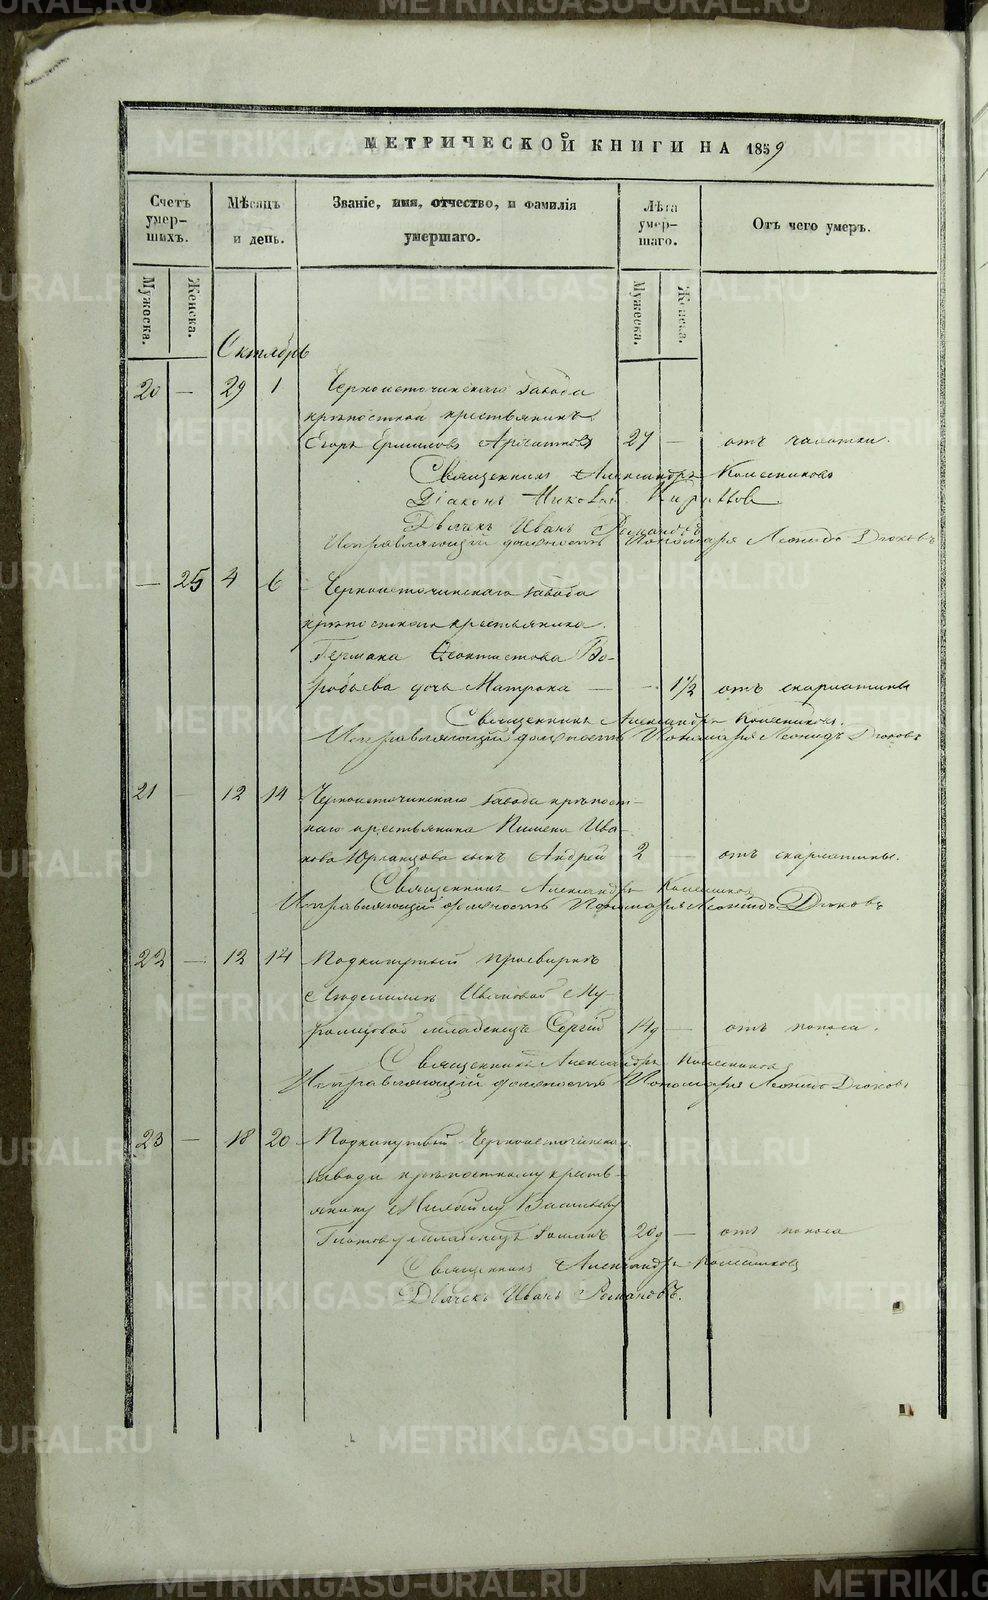 МЕТРИЧЕСКОЙ КНИГИ НА 1859
Счетъ умер-шихъ.
Мѣсяцъ и день.
Званіе, имя, отчество, и фамилія умершаго.
Лѣта умер-шаго.
Отъ чего умеръ.
Мужеска.
Женска.
Мужеска.
Женска.
Октябрь
20 — 29 1 Черноисточинскаго завода
крѣпостной крестьянинъ
Егоръ Ермиловъ 27 — отъ чахотки.
Священникъ Александръ Колесниковъ
Діаконъ
Дьячекъ Иванъ Романовъ
Исправляющій должность Пономаря Леонидъ Дюковъ
— 25 4 6 Черноисточинскаго завода
крѣпостнаго крестьянина
Германа Феоктистова Во-
робьева дочь Матрона — — 1½ отъ скарлатины
Священникъ Александръ Колесниковъ.
Исправляющій должность Пономаря Леонидъ Дюковъ
21 — 12 14 Черноисточинскаго завода крѣпост-
наго крестьянина Пимена Ива-
нова Юрганцова сынъ Андрей 2 — отъ скарлатины.
Священникъ Александръ Колесниковъ
Исправляющій должность Пономаря Леонидъ Дюковъ
22 — 12 14 Подкинутый просвирнѣ
Ивановой Му-
ромцовой младенецъ Сергій 14д — отъ поноса.
Священникъ Александръ Колесниковъ
Исправляющій должность Пономаря Леонидъ Дюковъ
23 — 18 20 Подкинутый Черноисточинскаго
завода крѣпостному кресть-
янину Михайлу Васильеву
младенецъ Романъ 20д — отъ поноса
Священникъ Александръ Колесниковъ
Дьячекъ Иванъ Романовъ.
METRIKI.GASO-URAL.RU